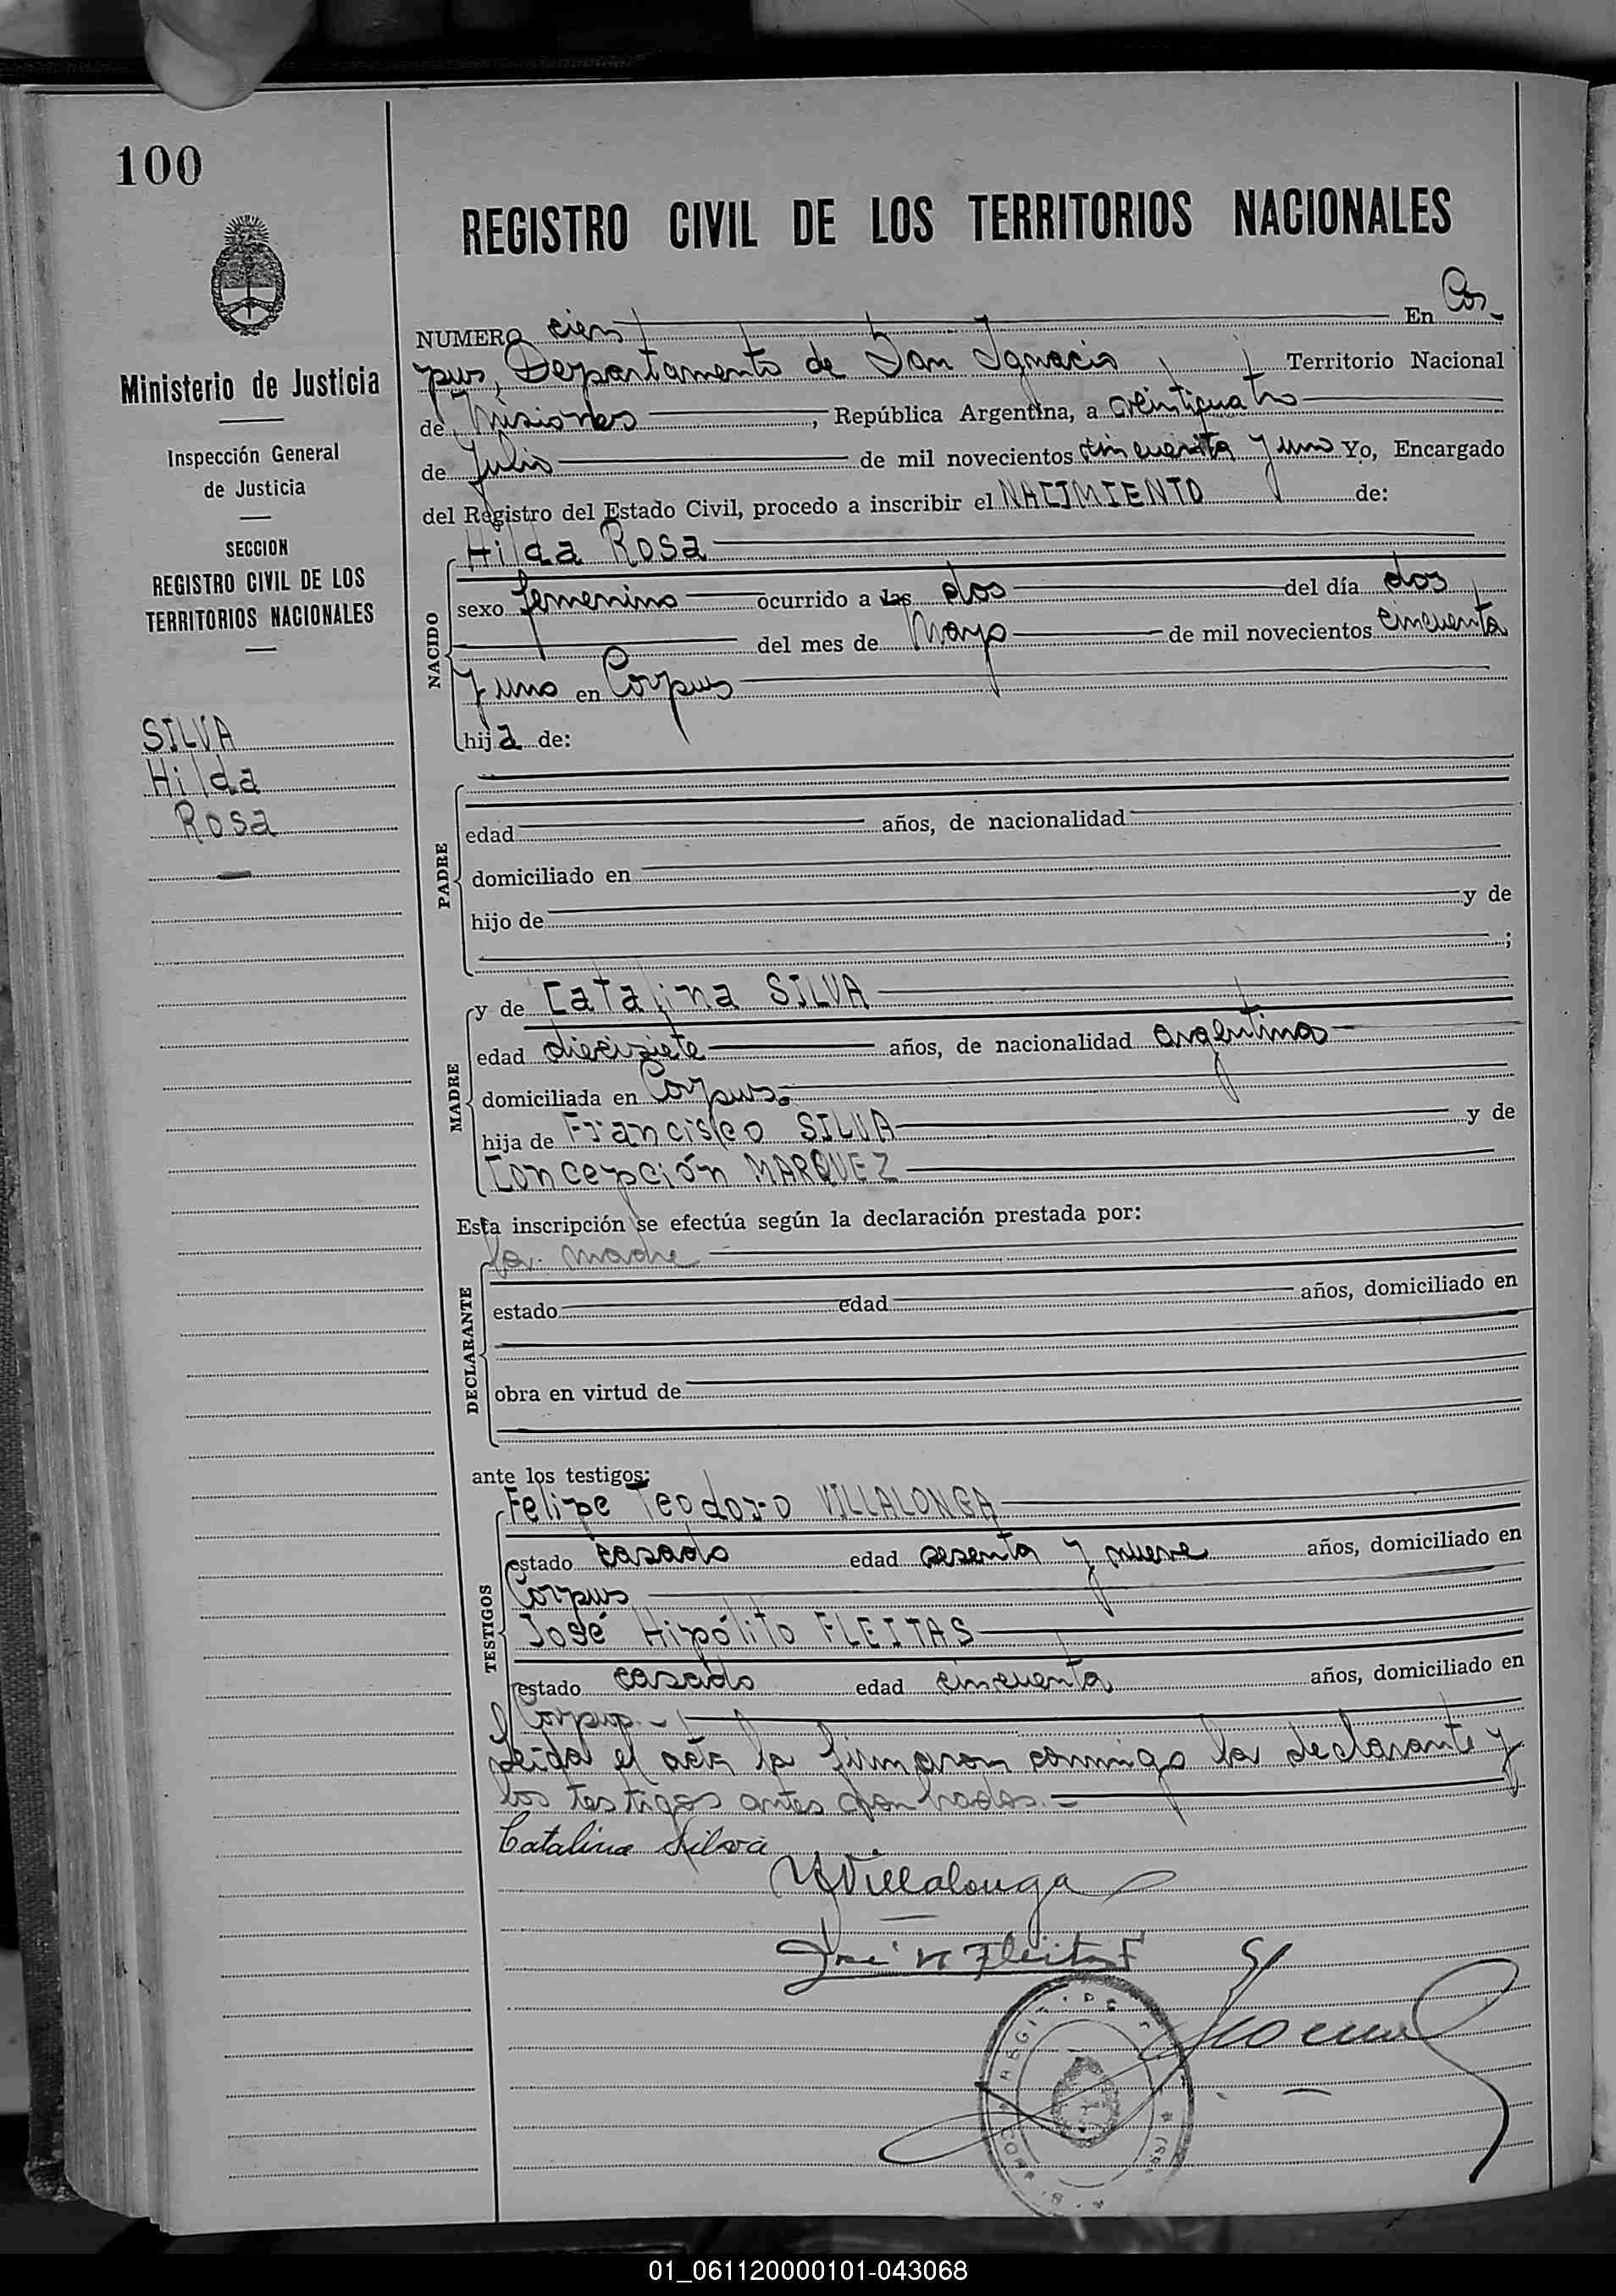 100
REGISTRO CIVIL DE LOS TERRITORIOS NACIONALES
Ministerio de Justicia
Inspección General
de Justicia
SECCION
REGISTRO CIVIL DE LOS
TERRITORIOS NACIONALES
SILVA
Hilda
Rosa
NUMERO cien En Cor-
pus, Departamento de San Ignacio Territorio Nacional
de Misiones, República Argentina, a veintiquatro
de Julio de mil novecientos cincuenta y uno Yo, Encargado
del Registro del Estado Civil, procedo a inscribir el NACIMIENTO de:
NACIDO
Hilda Rosa
sexo femenino ocurrido a las dos del día dos
del mes de Mayo de mil novecientos cincuenta
y uno en Corpus
hija de:
PADRE
edad años, de nacionalidad
domiciliado en
hijo de y de
;
MADRE
y de Catalina SILVA
edad diecisiete años, de nacionalidad argentina
domiciliada en Corpus.
hija de Francisco SILVA y de
Concepción MARQUEZ
Esta inscripción se efectúa según la declaración prestada por:
DECLARANTE
la madre
estado edad años, domiciliado en
obra en virtud de
ante los testigos:
TESTIGOS
Felipe Teodoro VILLALONGA
estado casado edad sesenta y nueve años, domiciliado en
Corpus
José Hipólito FLEITAS
estado casado edad cincuenta años, domiciliado en
Corpus.-
Leida el acta la firmaron conmigo la declarante y
los testigos antes
Catalina Silva
Villalonga
José H Fleitas
01_061120000101-043068